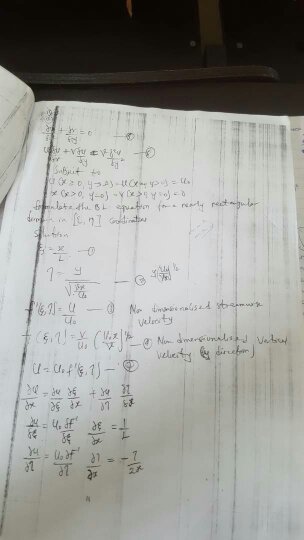 + ∂v/∂y = 0 — ①
+ v∂u/∂y = ν ∂²u/∂y² — ②
Subject to
u(x≥0, y→∞) = u(x=0, y>0) = U₀
u(x>0, y=0) = v(x, y=0) = 0
Formulate the B.L equation for a nearly rectangular
domain in [ξ, η] coordinates
Solution
ξ = x/L — ①
η = y/√(
f'(ξ,η) = u/U₀ — ③ Non dimensionalised streamwise
velocity
(ξ,η) = v/U₀ (U₀x/ν)^½ — ④ Non dimensionalised vertical
velocity (y direction)
u = U₀ f'(ξ,η) — ⑤
∂u/∂x = ∂u/∂ξ ∂ξ/∂x + ∂u/∂η ∂η/∂x
∂u/∂ξ = U₀ ∂f'/∂ξ ∂ξ/∂x = 1/L
∂u/∂η = U₀ ∂f'/∂η ∂η/∂x = -η/2x